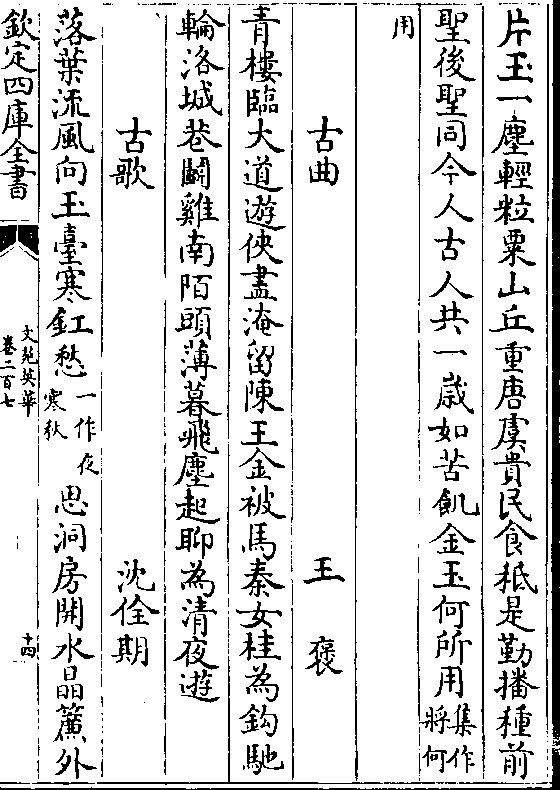 片玉一塵輕粒粟山丘重唐虞貴民食秪是勤播種前
聖後聖同今人古人共一歳如苦飢金玉何所用集作將何
用
古曲 王褒
青樓臨大道遊俠盡淹留陳王金被馬秦女桂為鈎馳
輪洛城巷鬭雞南陌頭薄暮飛塵起聊為清夜遊
古歌 沈佺期
落葉流風向玉臺寒釭愁一作夜寒秋思洞房開水晶簾外
欽定四庫全書
文苑英華
卷二百七
十四